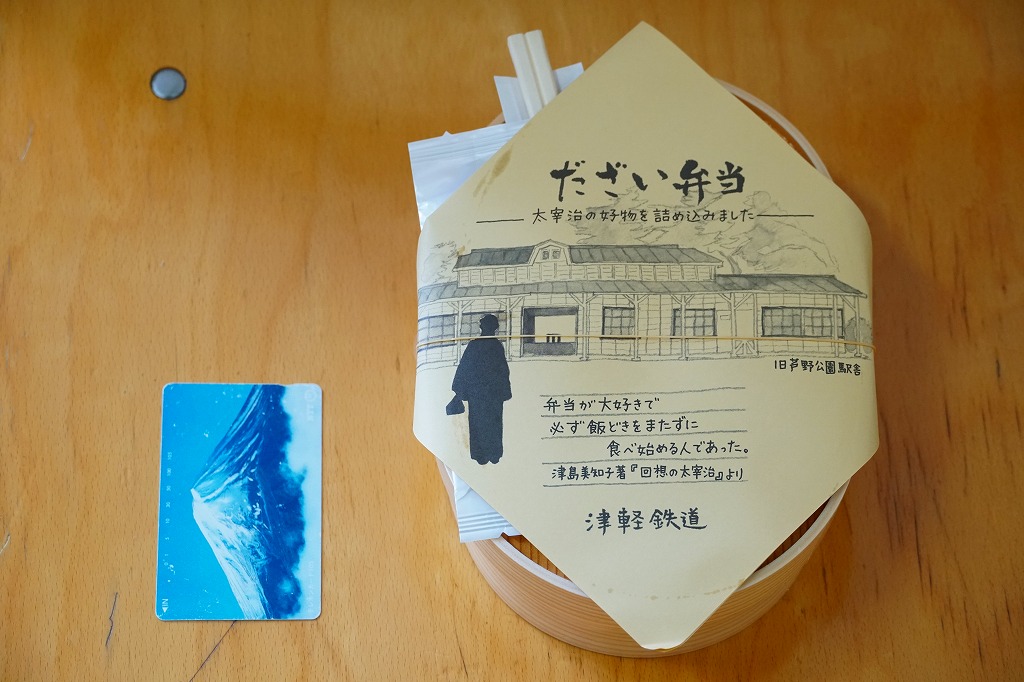 だざい弁当
太宰治の好物を詰め込みました
旧芦野公園駅舎
弁当が大好きで
必ず飯どきをまたずに
食べ始める人であった。
津島美知子著『回想の太宰治』より
津軽鉄道
IN